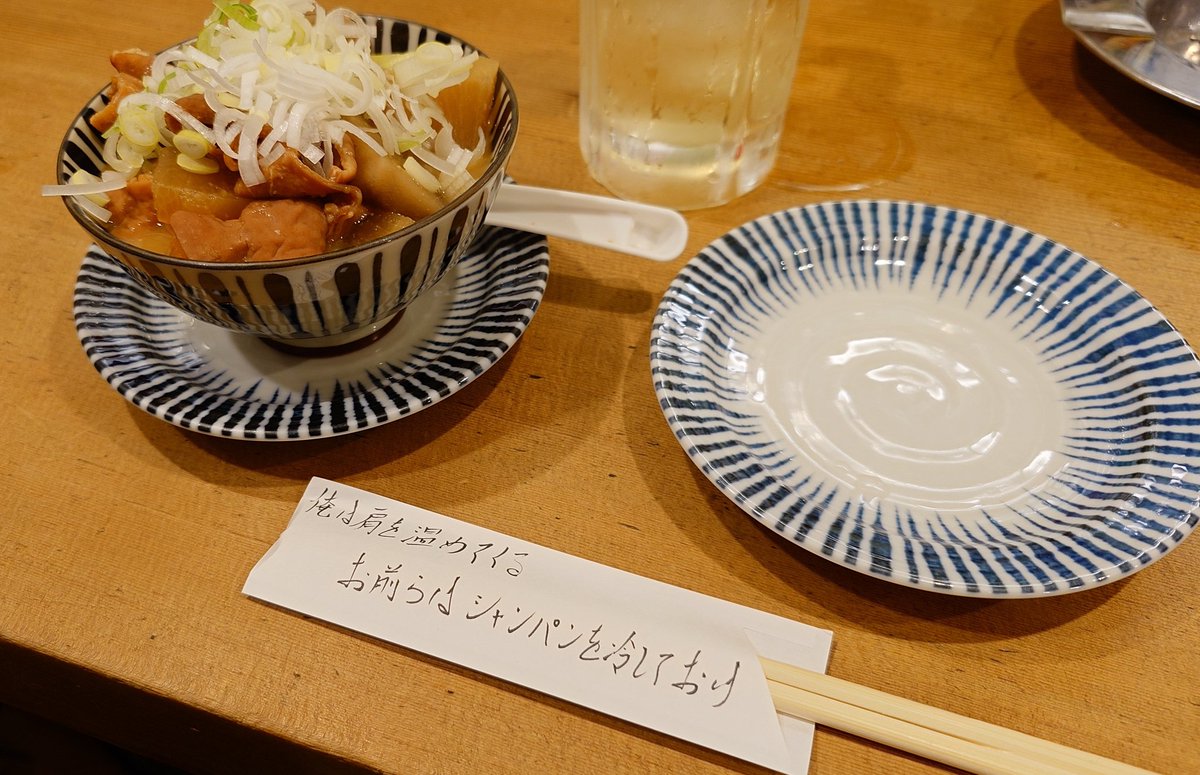 俺は肩を温めてくる
お前らはシャンパンを冷しておけ